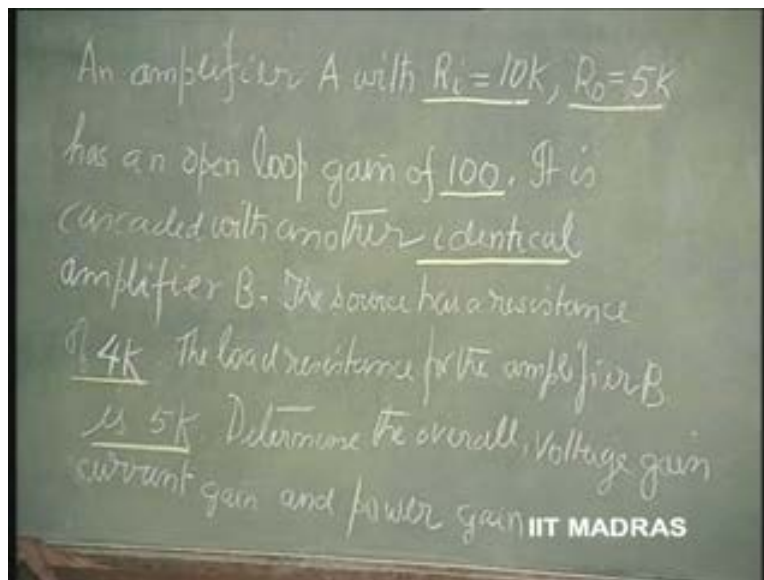 An amplifier A with Ri=10K, Ro=5K
has an open loop gain of 100. It is
cascaded with another identical
amplifier B. The source has a resistance
of 4K. The load resistance for the amplifier B
is 5K. Determine the overall, voltage gain
current gain and power gain
IIT MADRAS